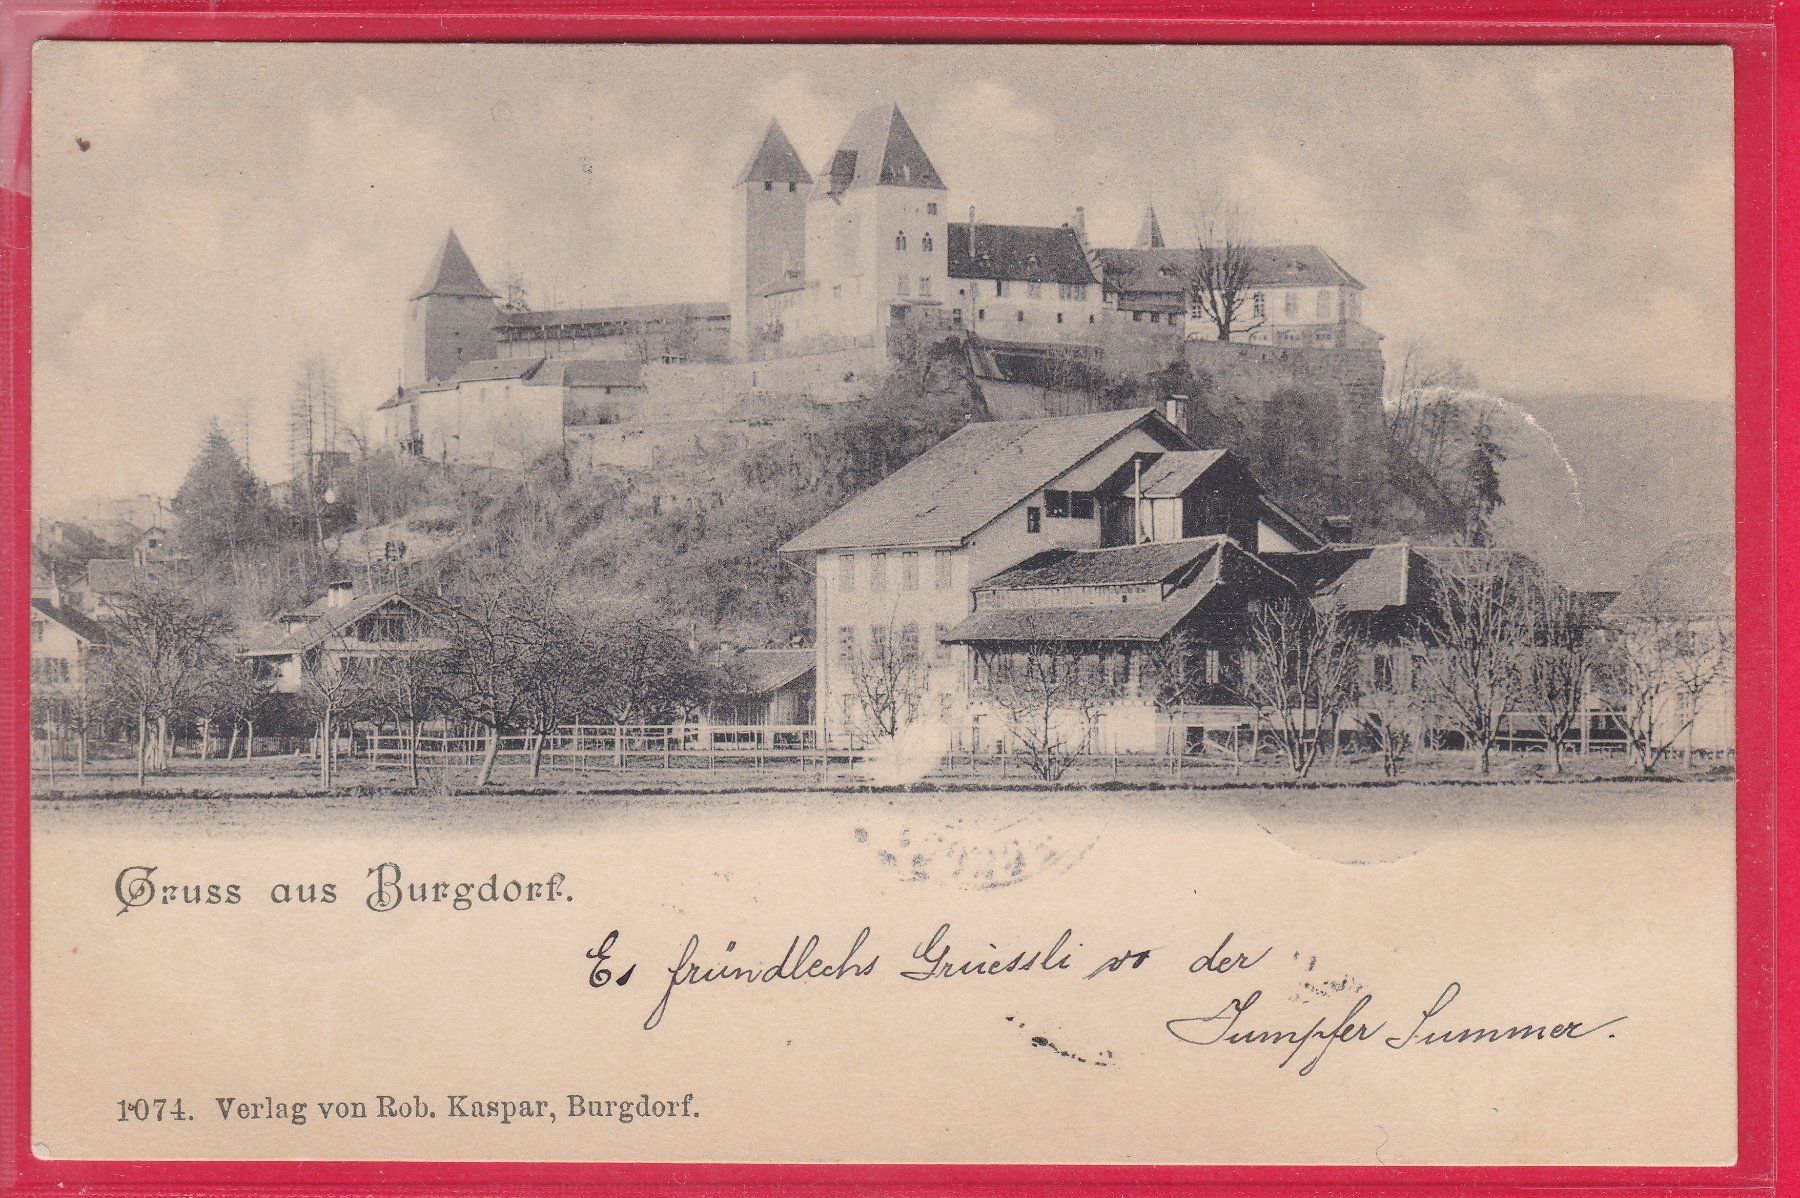 Gruss aus Burgdorf.
Es fründlechs Grüessli vo der
Jumpfer Summer.
1074. Verlag von Rob. Kaspar, Burgdorf.